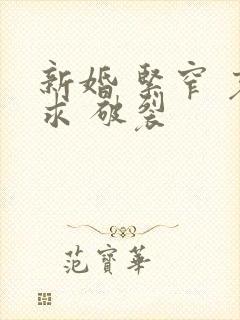 新婚 緊窄
求 破裂
范寶華